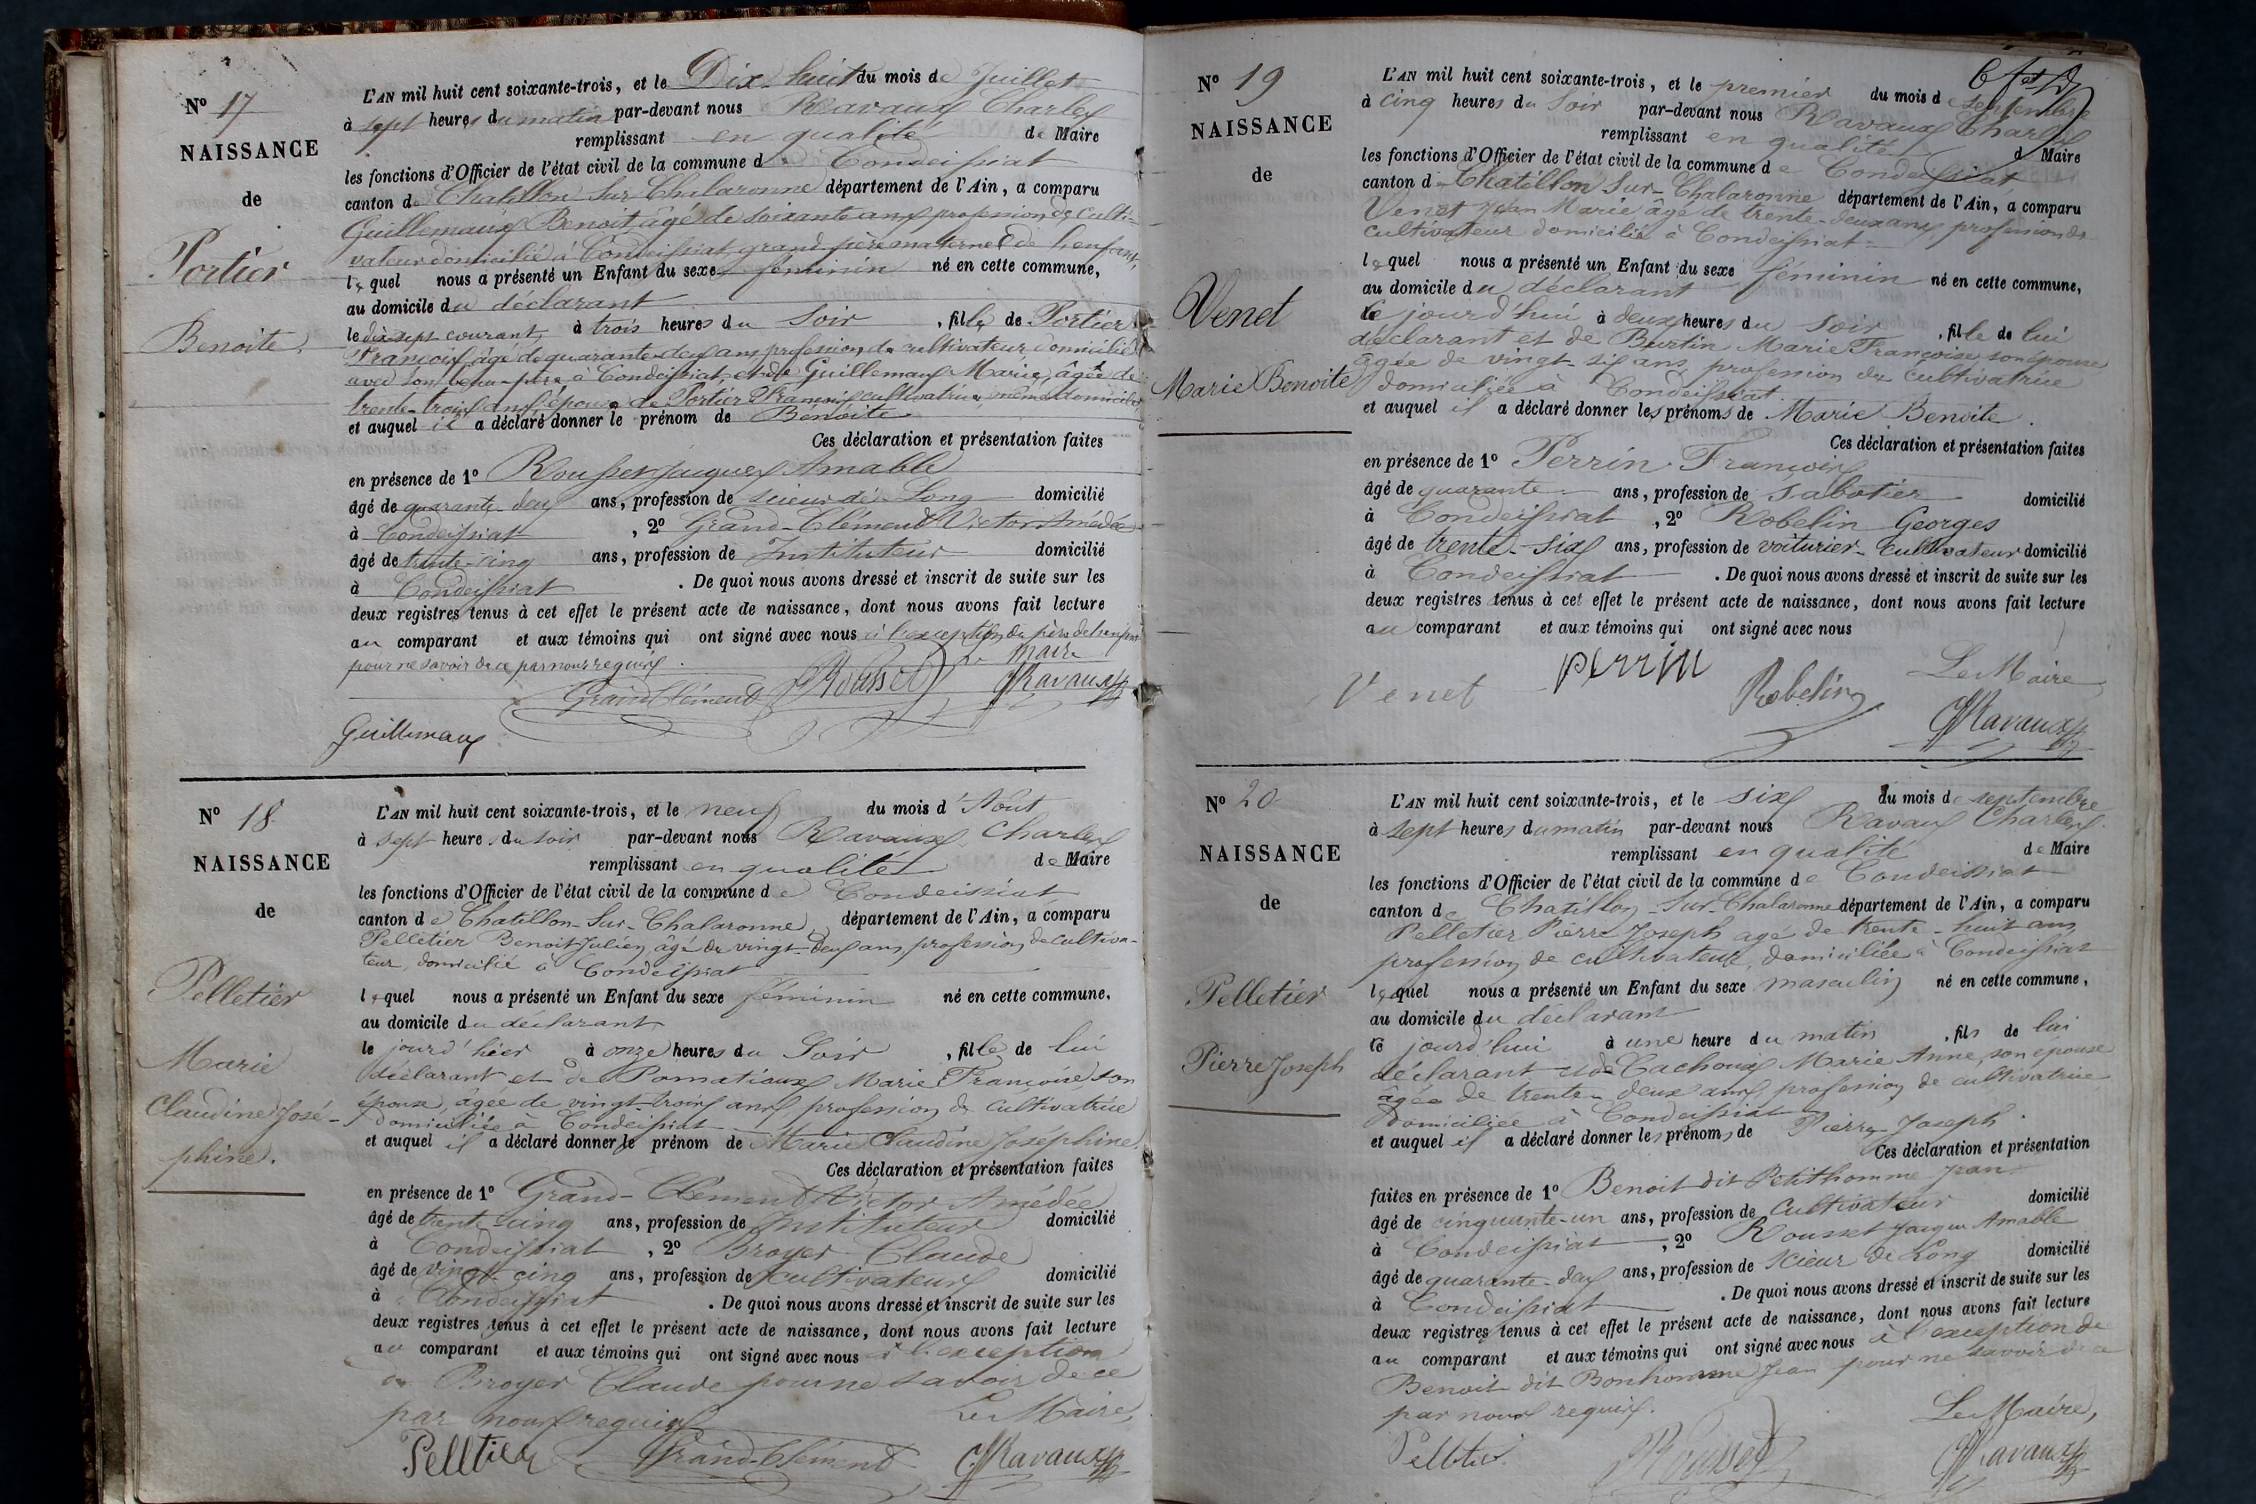 N° 17
NAISSANCE
de
Portier
Benoite.
L'AN mil huit cent soixante-trois, et le Dix-huit du mois de Juillet
à sept heures du matin par-devant nous Ravaux Charles
remplissant en qualité de Maire
les fonctions d'Officier de l'état civil de la commune de Condeissiat
canton de Chatillon sur Chalaronne département de l'Ain, a comparu
Guillemaux Benoit agé de soixante ans profession de culti-
vateur domicilié à Condeissiat, grand-père maternel de l'enfant,
lequel nous a présenté un Enfant du sexe féminin né en cette commune,
au domicile du déclarant
le dix-sept courant à trois heures du Soir , fille de Portier
François, âgé de quarante-deux ans profession de cultivateur domicilié
avec son beau-père à Condeissiat, et de Guillemaux Marie, âgée de
trente-trois ans épouse de Portier François cultivatrice, même domicile,
et auquel il a déclaré donner le prénom de Benoite
Ces déclaration et présentation faites
en présence de 1° Rousset Jacques Amable
âgé de quarante-deux ans, profession de scieur de Long domicilié
à Condeissiat , 2° Grand-Clément Victor Amédée
âgé de trente-cinq ans, profession de Instituteur domicilié
à Condeissiat . De quoi nous avons dressé et inscrit de suite sur les
deux registres tenus à cet effet le présent acte de naissance, dont nous avons fait lecture
au comparant et aux témoins qui ont signé avec nous à l'exception du père de l'enfant
pour ne savoir de ce par nous requis.
Le Maire
Grand Clément Rousset Ravaux
Guillemaux
N° 18
NAISSANCE
de
Pelletier
Marie
Claudine José-
phine.
L'AN mil huit cent soixante-trois, et le neuf du mois d'Août
à sept heures du soir par-devant nous Ravaux Charles
remplissant en qualité de Maire
les fonctions d'Officier de l'état civil de la commune de Condeissiat
canton de Chatillon-Sur-Chalaronne département de l'Ain, a comparu
Pelletier Benoit Julien, âgé de vingt-deux ans, profession de cultiva-
teur, domicilié à Condeissiat
lequel nous a présenté un Enfant du sexe féminin né en cette commune,
au domicile du déclarant
le jourd'hier à onze heures du Soir , fille de lui
déclarant et de Pomatiaux Marie Françoise, son
épouse, agée de vingt-trois ans, profession de cultivatrice
domiciliée à Condeissiat
et auquel il a déclaré donner le prénom de Marie Claudine Joséphine,
Ces déclaration et présentation faites
en présence de 1° Grand-Clément Victor Amédée
âgé de trente cinq ans, profession de Instituteur domicilié
à Condeissiat , 2° Broyer Claude
âgé de vingt-cinq ans, profession de cultivateur domicilié
à Condeissiat . De quoi nous avons dressé et inscrit de suite sur les
deux registres tenus à cet effet le présent acte de naissance, dont nous avons fait lecture
au comparant et aux témoins qui ont signé avec nous à l'exception
de Broyer Claude pour ne savoir de ce
par nous requis
Le Maire,
Pelltier Grand-Clément Ravaux
N° 19
NAISSANCE
de
Venet
Marie Benoite
L'AN mil huit cent soixante-trois, et le premier du mois de septembre
à cinq heures du Soir par-devant nous Ravaux Charles
remplissant en qualité d Maire
les fonctions d'Officier de l'état civil de la commune de Condeissiat
canton de Chatillon Sur-Chalaronne département de l'Ain, a comparu
Venet Jean Marie âgé de trente-deux ans, profession de
cultivateur domicilié à Condeissiat
lequel nous a présenté un Enfant du sexe féminin né en cette commune,
au domicile du déclarant
ce jourd'hui à deux heures du soir , fille de lui
déclarant et de Burtin Marie Françoise, son épouse
âgée de vingt-six ans, profession de cultivatrice
domiciliée à Condeissiat.
et auquel il a déclaré donner les prénoms de Marie Benoite.
Ces déclaration et présentation faites
en présence de 1° Perrin François
âgé de quarante ans, profession de sabotier domicilié
à Condeissiat , 2° Robelin Georges
âgé de trente-six ans, profession de voiturier-cultivateur domicilié
à Condeissiat . De quoi nous avons dressé et inscrit de suite sur les
deux registres tenus à cet effet le présent acte de naissance, dont nous avons fait lecture
au comparant et aux témoins qui ont signé avec nous
Le Maire
Venet Perrin Robelin Ravaux
N° 20
NAISSANCE
de
Pelletier
Pierre Joseph
L'AN mil huit cent soixante-trois, et le six du mois de septembre
à sept heures du matin par-devant nous Ravaux Charles
remplissant en qualité de Maire
les fonctions d'Officier de l'état civil de la commune de Condeissiat
canton de Chatillon-Sur-Chalaronne département de l'Ain, a comparu
Pelletier Pierre Joseph agé de trente-huit ans
profession de cultivateur, domiciliée à Condeissiat
lequel nous a présenté un Enfant du sexe masculin né en cette commune,
au domicile du déclarant
ce jourd'hui à une heure du matin , fils de lui
déclarant et de Cachoux Marie Anne, son épouse
âgée de trente-deux ans, profession de cultivatrice
domiciliée à Condeissiat
et auquel il a déclaré donner les prénoms de Pierre Joseph.
Ces déclaration et présentation
faites en présence de 1° Benoit dit Petithomme Jean
âgé de cinquante-un ans, profession de Cultivateur domicilié
à Condeissiat , 2° Rousset Jacques Amable
âgé de quarante-deux ans, profession de Scieur de Long domicilié
à Condeissiat . De quoi nous avons dressé et inscrit de suite sur les
deux registres tenus à cet effet le présent acte de naissance, dont nous avons fait lecture
au comparant et aux témoins qui ont signé avec nous à l'exception de
Benoit dit Bonhomme Jean pour ne savoir de ce
par nous requis.
Le Maire,
Pelletier Rousset Ravaux